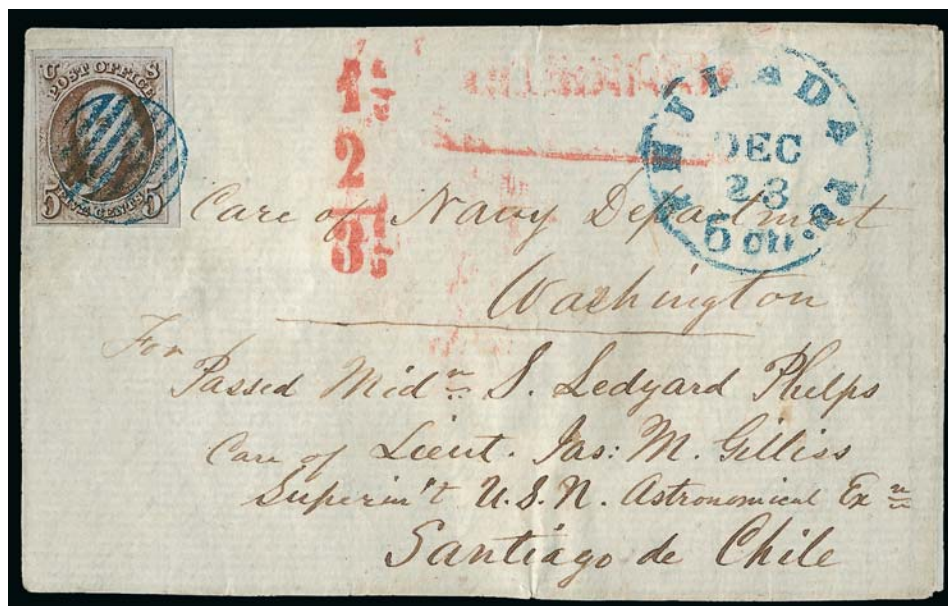 U S
POST OFFICE
5 FIVE CENTS 5
1 1/2
2
3 1/2
PHILADA Pa.
DEC
23
5 cts
Care of Navy Department
Washington
For
Passed Mid<sup>n</sup> S. Ledyard Phelps
Care of Lieut. Jas: M. Gilliss
Superin't U.S.N. Astronomical Ex<sup>n</sup>
Santiago de Chile